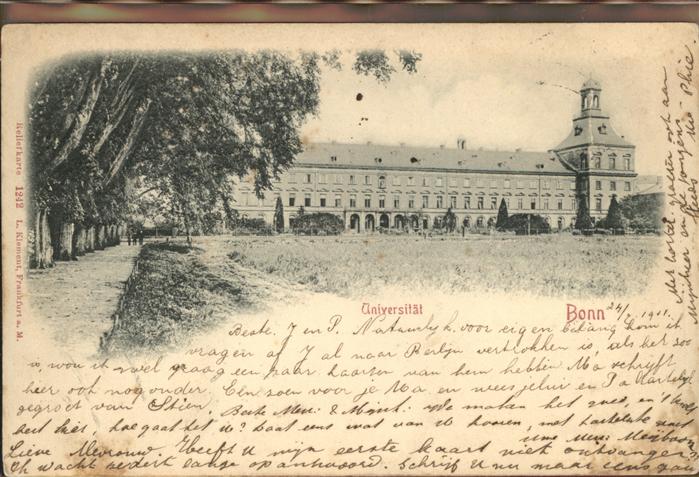 Reliefkarte 1242 L. Klement, Frankfurt a. M.
Universität
Bonn 24/
Beste J en P. Natuurlyk voor eigen belang kom ik
vragen of J al naar Berlyn vertrokken is, als het zoo
is, wou ik wel graag een paar kaarten van hem hebben Ma schryft
hier ook nog onder. Een zoen voor je Ma en wees jelui en Pa hartelyk
gegroet van Stien. Beste Mevr. & We maken het goed, en 't
hier, hoe gaat het U? Laat eens wat van U hooren, met hartelyke
Lieve Mevrouw. Heeft U myn eerste kaart niet ontvangen?
Ik wacht zedert lange op antwoord. Schrijf U nu maar eens gauw
Met hooren ook aan
Mynheer en de jongens